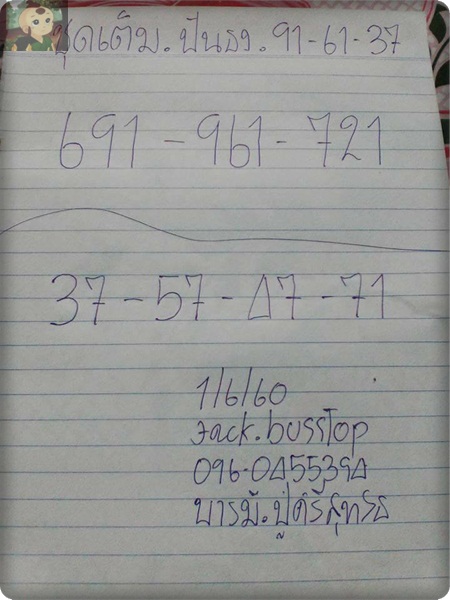 ชุดเต็ม. ปันธง. 91-61-37
691 - 961 - 721
37 - 57 - 47 - 71
1/6/60
Jack.bussTop
096-0455394
บารมี. ปู่ศรีสุทโธ